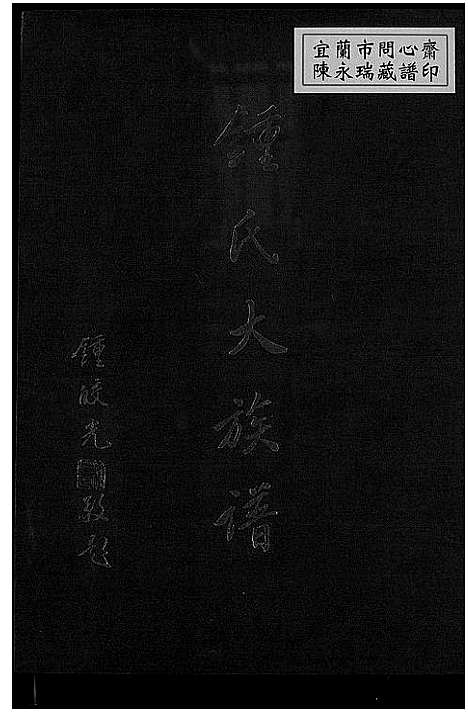 宜蘭市問心齋
陳永瑞藏譜印
鍾氏大族譜
鍾皎光敬題